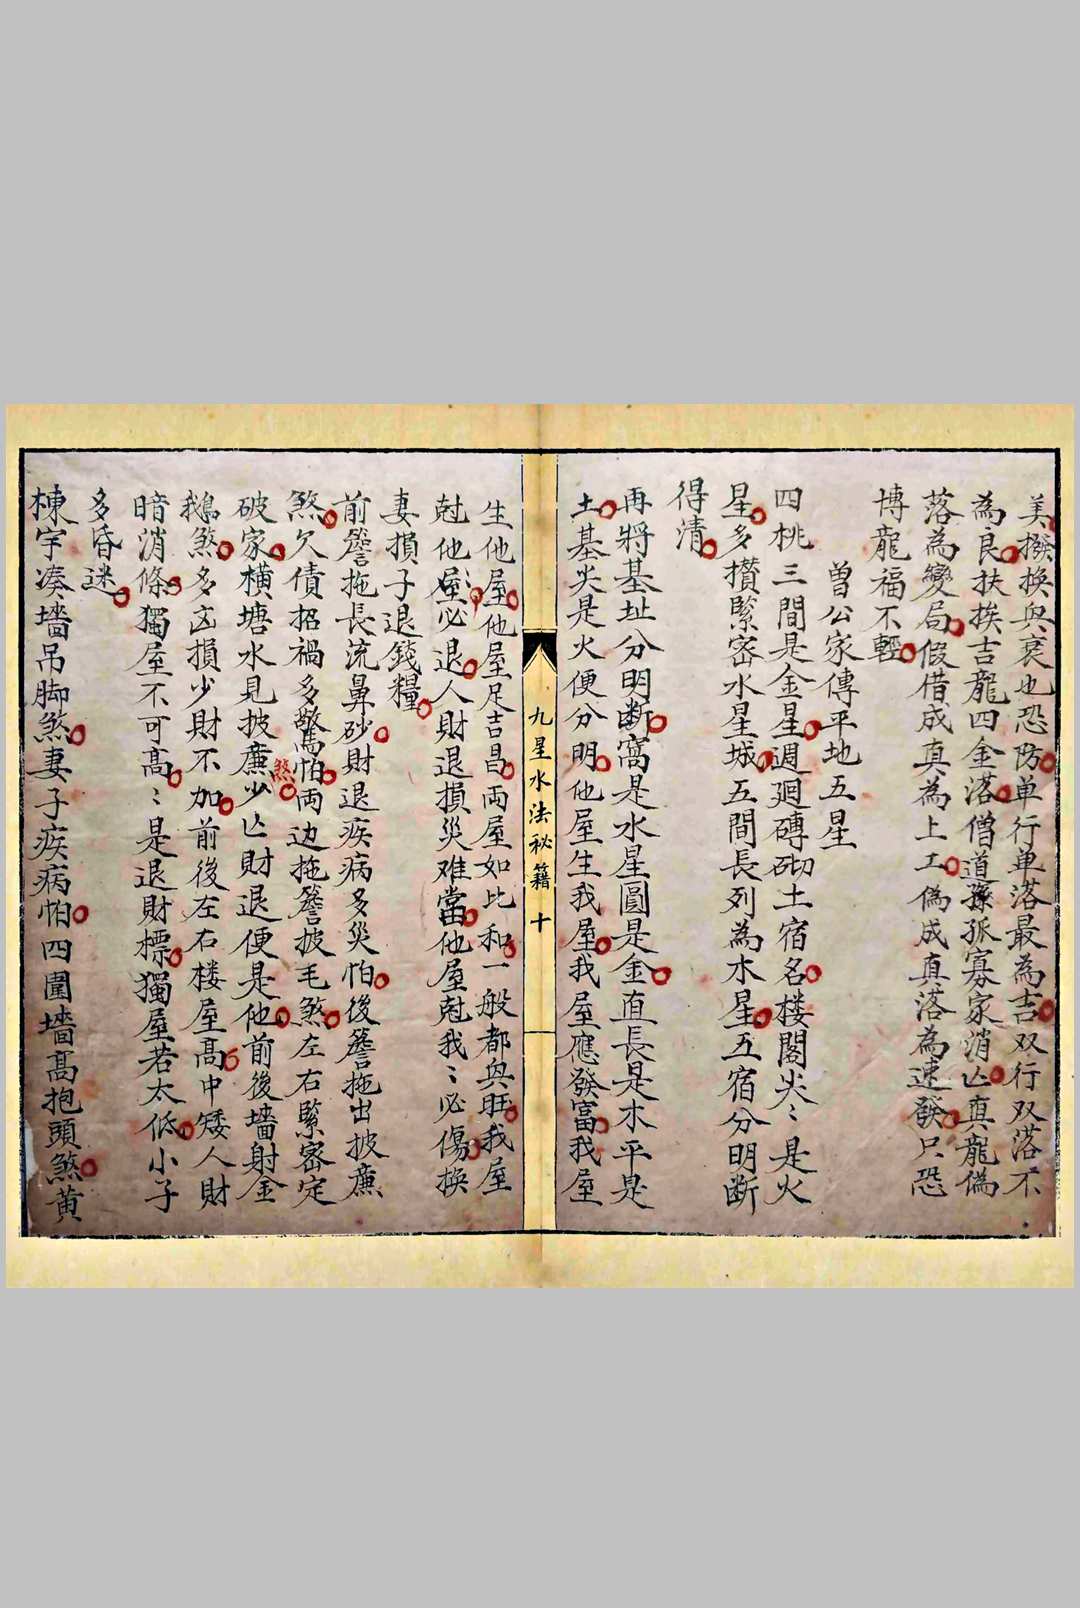 美撥換與衰也恐防单行单落最為吉双行双落不
為良扶挨吉龍四金落僧道孫孤寡家消亾真龍偽
落為變局假借成真為上工偽成真落為速發只恐
博龍福不輕
曾公家傳平地五星
四桃三間是金星週廻磚砌土宿名楼閣尖〻是火
星多攅緊密水星城五間長列為木星五宿分明断
得清
再將基址分明断窩是水星圓是金直長是木平是
土基尖是火便分明他屋生我屋我屋應發富我屋
九星水法祕籍 十
生他屋他屋足吉昌両屋如比和一般都與旺我屋
尅他屋必退人財退損災难當他屋尅我〻必傷換
妻損子退錢糧
前簷拖長流鼻砂財退疾病多災怕後簷拖出披廉
煞欠債招禍多驚怕両边拖簷披毛煞左右緊密定
破家横塘水見披廉煞少亾財退便是他前後墻射金
鵝煞多凶損少財不加前後左右楼屋髙中矮人財
暗消條獨屋不可髙〻是退財標獨屋若太低小子
多昏迷
棟宇凑墻吊脚煞妻子疾病怕四圍墻髙抱頭煞黄